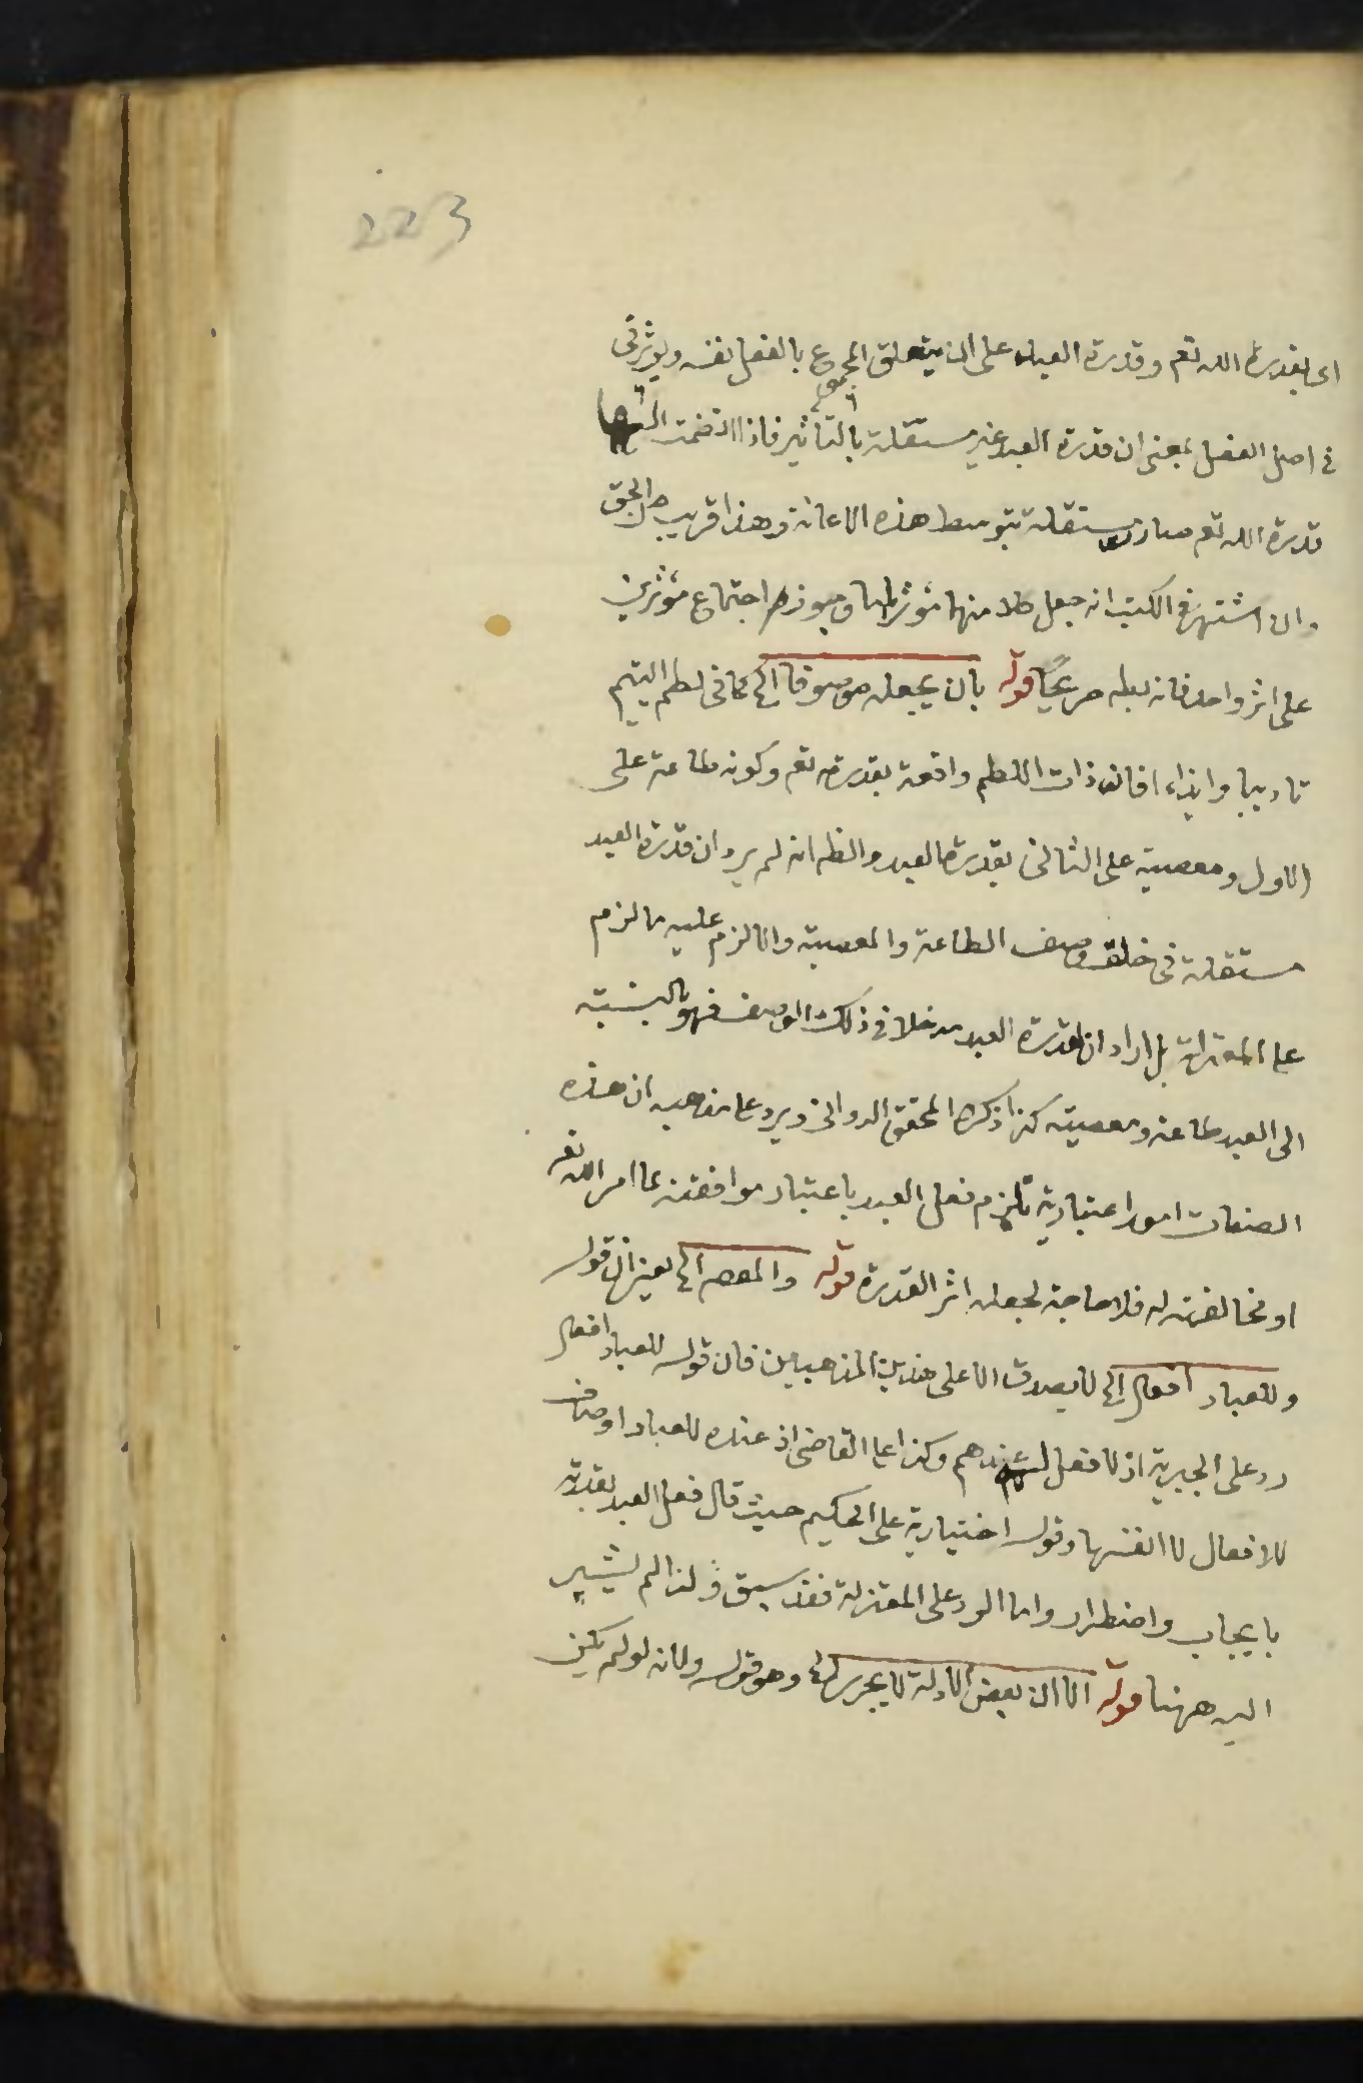 223
اى بقدرة الله تعم وقدرة العباد على ان يتعلق المجموع بالفعل نفسه ويؤثر فى
فى اصل الفعل بمعنى ان قدرة العبد غير مستقلة بالتأثير فاذا انضمت اليها
قدرة الله تعم صارت مستقلة بتوسط هذه الاعانة وهذا قريب من الحق
وان اشتهر فى الكتب انه جعل كلا منهما مؤثرا تاما وجوز اجتماع مؤثرين
على اثر واحد فانه بط صريحا قوله بان يجعله موصوفا الخ كما فى لطم اليتيم
تاديبا وايذاء فان ذات اللطم واقعة بقدرته تعم وكونه طاعة على
الاول ومعصية على الثانى بقدرة العبد والظ انه لم يرد ان قدرة العبد
مستقلة فى خلق وصف الطاعة والمعصية والا لزم عليه ما لزم
على المعتزلة بل اراد ان لقدرة العبد مدخلا فى ذلك الوصف فهو بالنسبة
الى العبد طاعة ومعصية كذا ذكره المحقق الدوانى ويرد على مذهبه ان هذه
الصفات امور اعتبارية تلزم فعل العبد باعتبار موافقته لما امر الله تعم
او مخالفته له فلا حاجة لجعله اثر القدرة قوله والمعصر الخ يعنى ان قوله
وللعباد افعال الخ لا يصدق الا على هذين المذهبين فان قوله للعباد افعال
رد على الجبرية اذ لا فعل عندهم وكذا على القاضى اذ عنده للعباد اوصاف
للافعال لا انفسها وقوله اختيارية على الحكيم حيث قال فعل العبد بقدرته
بايجاب واضطرار واما الرد على المعتزلة فقد سبق ولذا لم يشير
اليه ههنا قوله الا ان بعض الادلة لا يجرى الخ وهو قوله ولانه لو لم يكن